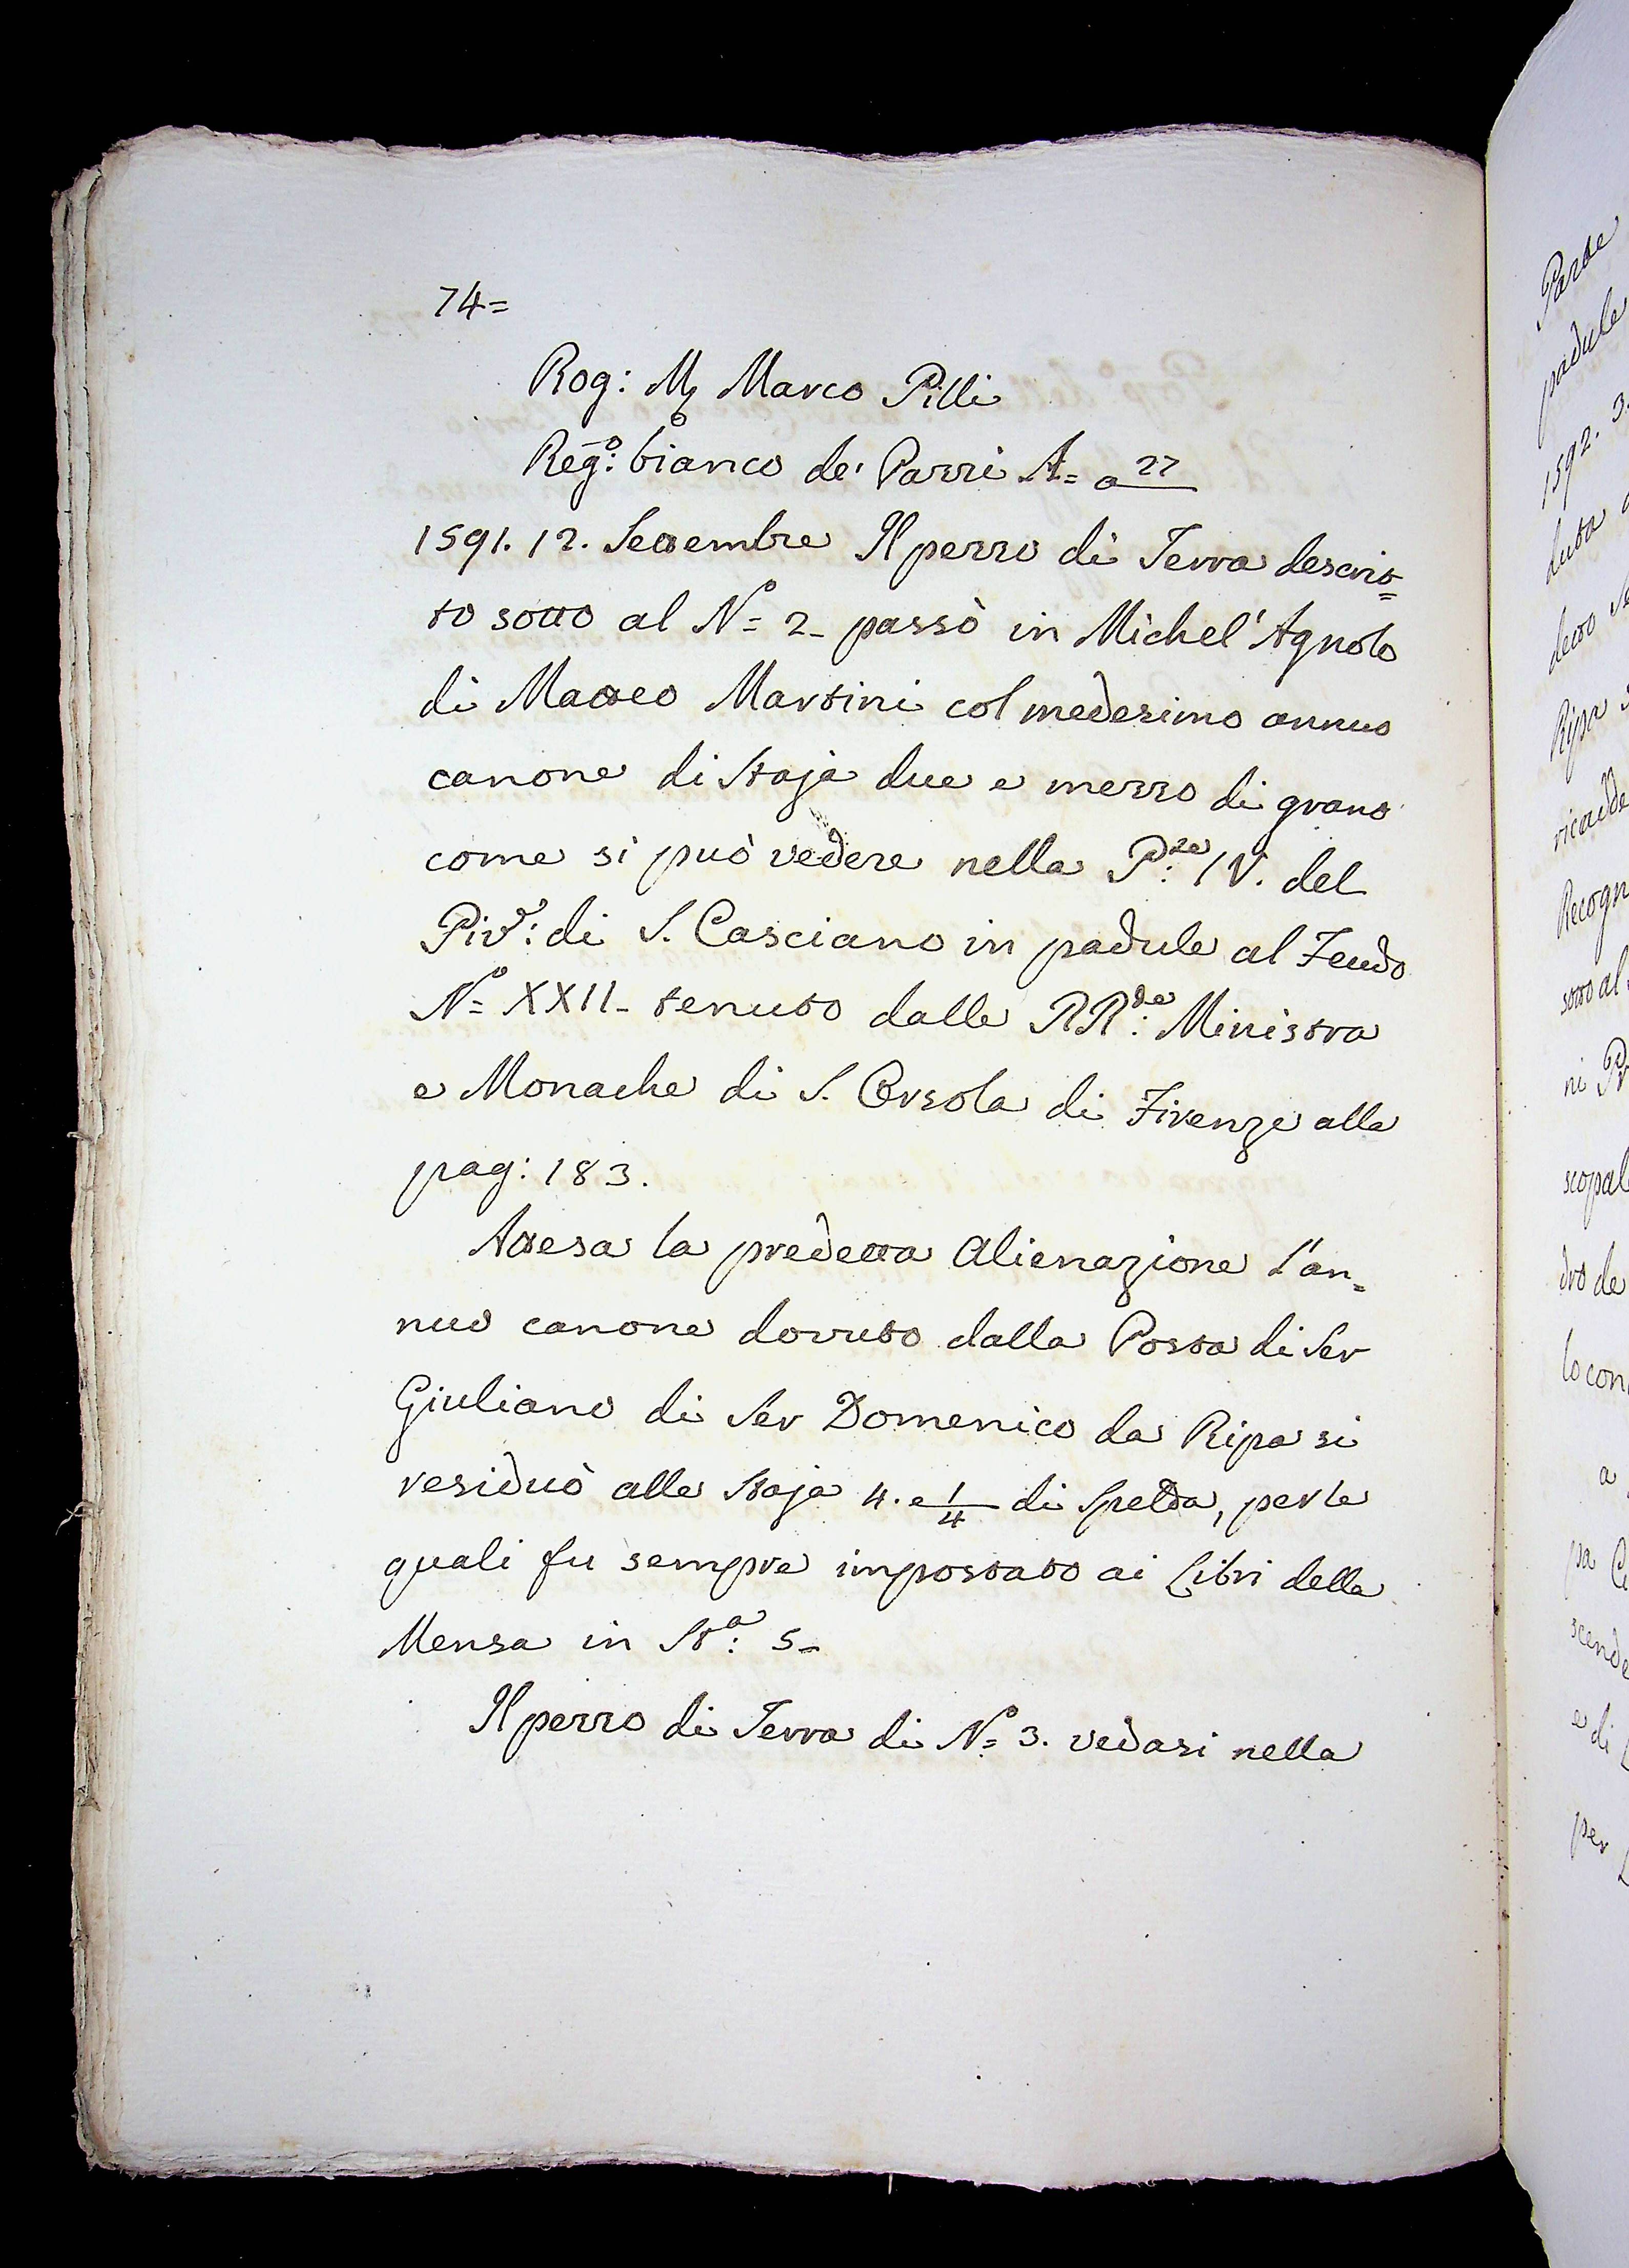 74=
Rog: Mr Marco Pilli
Rego: bianco de' Pazzi A= a 27
1591. 12. Settembre Il pezzo di Terra descrit=
to sotto al No= 2- passò in Michel'Agnolo
di Matteo Martini col medesimo annuo
canone di Staja due e mezzo di grano
come si può vedere nella Pte: IV. del
Pivre: di S. Casciano in padule al Feudo
No= XXII- tenuto dalle RRde: Ministra
e Monache di S. Orsola di Firenze alla
pag: 183.
Attesa la predetta Alienazione l'an=
nuo canone dovuto dalla Posta di Ser
Giuliano di Ser Domenico da Ripa si
residuò alle Staja 4. e 1/4 di Spelda, per le
quali fu sempre impostato ai Libri della
Mensa in Sta: 5-
Il pezzo di Terra di No= 3. vedasi nella
Parte
padule
1592. 3.
duta
detto
Ripa
ricadde
Recogn
sotto al
ni
scopal
dro de
lo con
a
pa
scende
e di
per